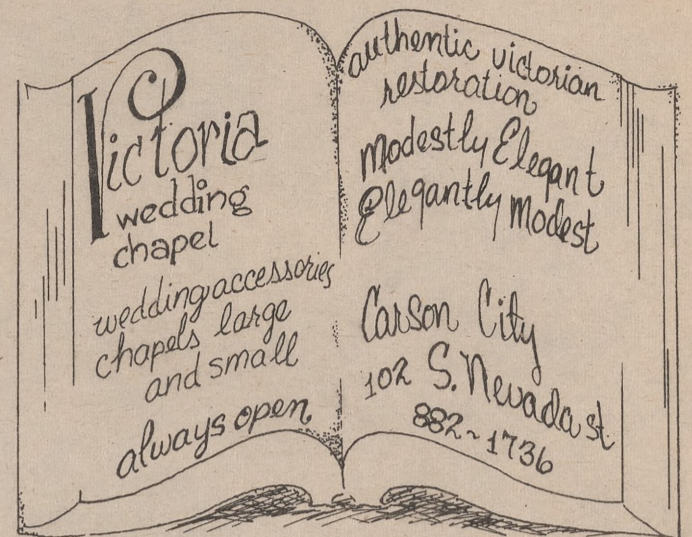 Victoria
wedding
chapel
wedding accessories
chapels large
and small
always open
authentic victorian
restoration
Modestly Elegant
Elegantly Modest
Carson City
102 S. Nevada st.
882~1736